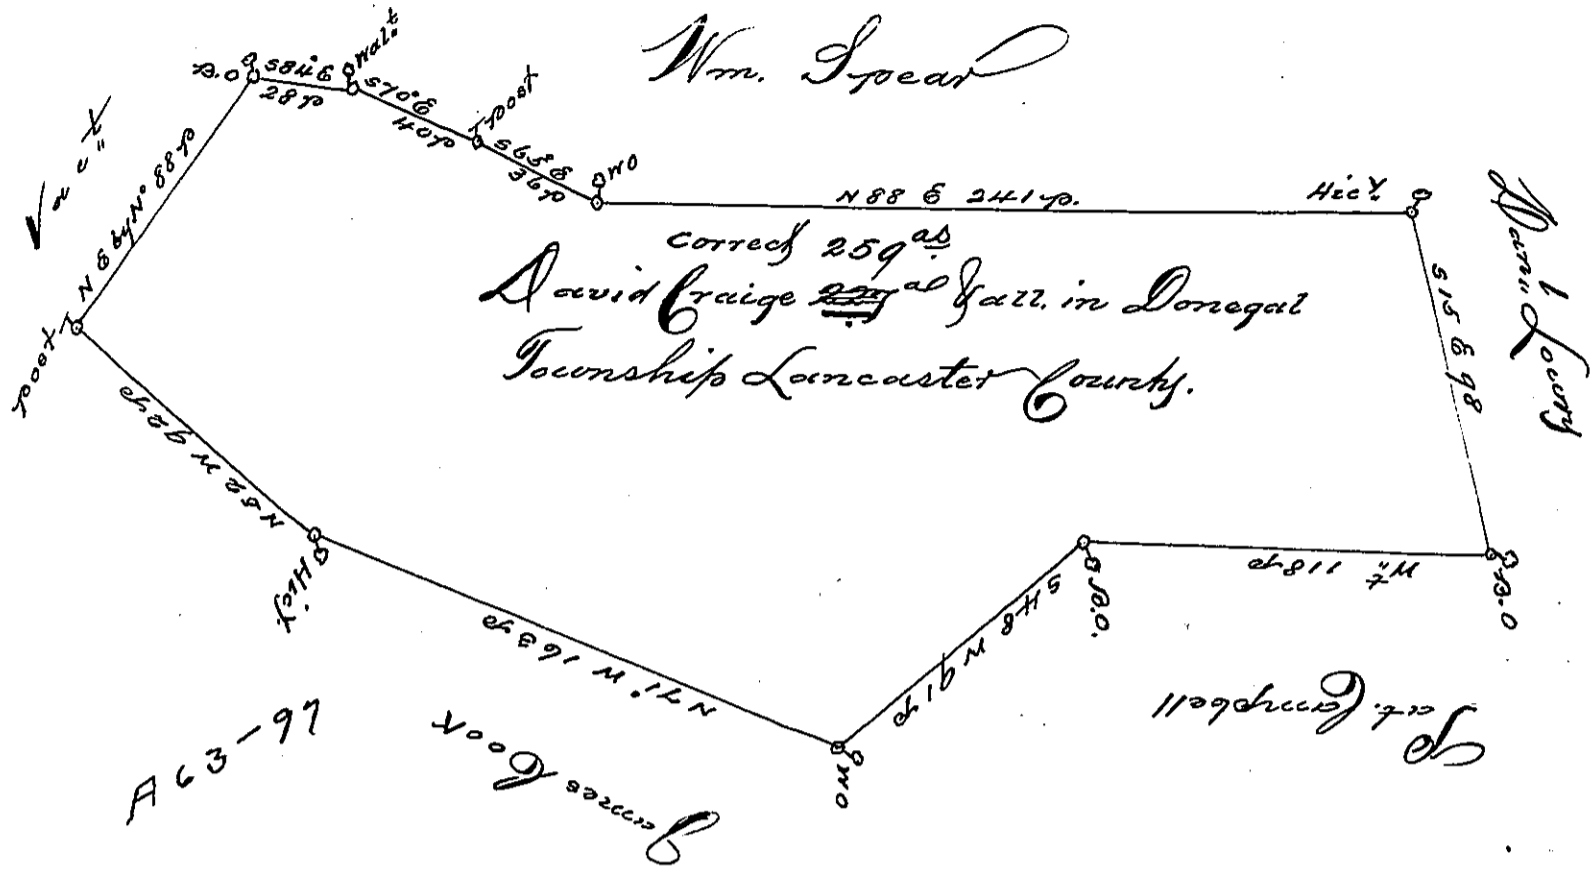 Wm. Spear
B.O
S84°E
28 p
Wal.t
S70°E
40 p
post
S63°E
36 p
WO
N88 E 241 p.
Hic.y
Vac.t
N E by N° 88 p
post
correct 259 as
David Craige all. in Donegal
Township Lancaster County.
Dan.l Lowry
S15 E 98
B.O
W.t 118 p
B.O.
S48 W 91 p
WO
N71° W 163 p
Hic.y
N52 W 92 p
Pat. Campbell
James Cook
A63-97